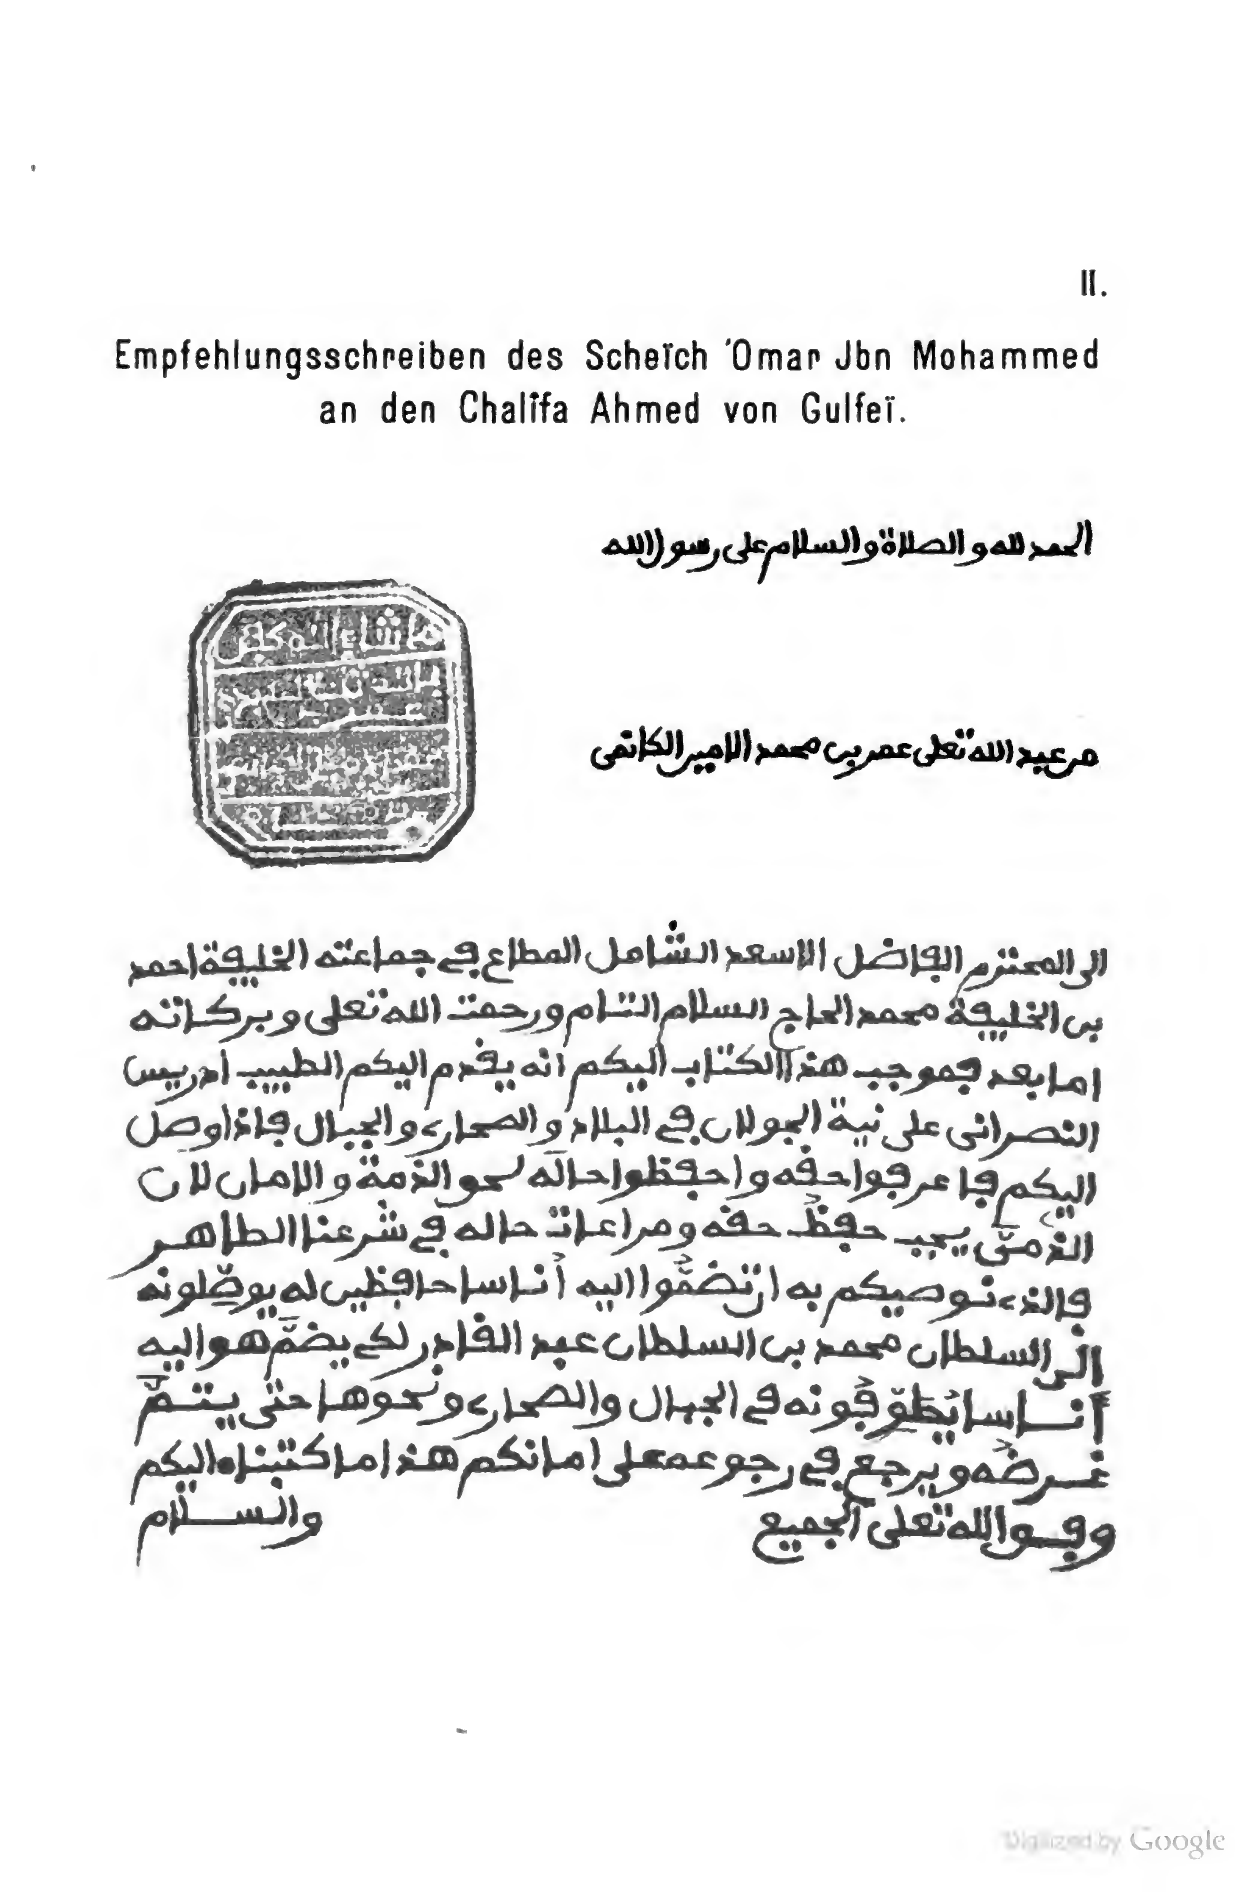 II.
Empfehlungsschreiben des Scheïch 'Omar Jbn Mohammed
an den Chalîfa Ahmed von Gulfeï.
الحمد لله والصلاة والسلام على رسول الله
من عبد الله تعلى عمر بن محمد الامين الكانمى
ما شاء الله
الى المحترم الفاضل الاسعد الشامل المطاع في جماعته الخليفة احمد
بن الخليفة محمد الحاج السلام التام ورحمت الله تعلى وبركاته
اما بعد فموجب هذا الكتاب اليكم انه يقدم اليكم الطبيب ادريس
النصرانى على نية الجولان في البلاد والصحارى والجبال فاذا وصل
اليكم فاعرفوا حقه واحفظوا حاله نحو الذمة والامان لان
الذمىّ يجب حفظ حقه ومراعات حاله في شرعنا الطاهر
فالذى نوصيكم به ان تضمّوا اليه أناسا حافظين له يوصّلونه
الى السلطان محمد بن السلطان عبد القادر لكى يضمّ هو اليه
أناسا يُطوّفونه في الجبال والصحارى ونحوها حتى يتمّ
غرضُه ويرجع في رجوعه على امانكم هذا ما كتبناه اليكم
وفق الله تعلى الجميع والسلام
Digitized by Google